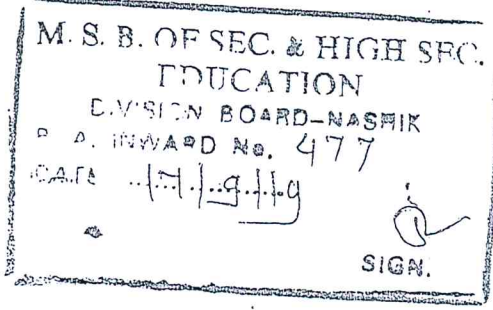 M. S. B. OF SEC. & HIGH SEC.
EDUCATION
DIVISION BOARD-NASHIK
P. A. INWARD No. 477
DATE ..17.|.9.|.19
SIGN.